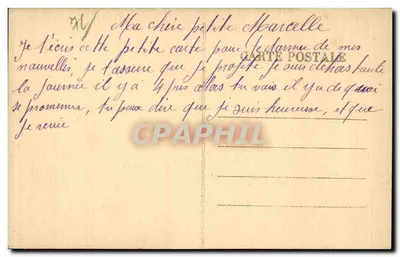 Ma chère petite Marcelle
Je t'écris cette petite carte pour te donner de mes
CARTE POSTALE
nouvelles je t'assure que je profite je suis dehors toute
la journée il y a 4 tu vois il y a de quoi
se promener, tu peux dire que je suis heureuse, et que
je
CPAPHIL